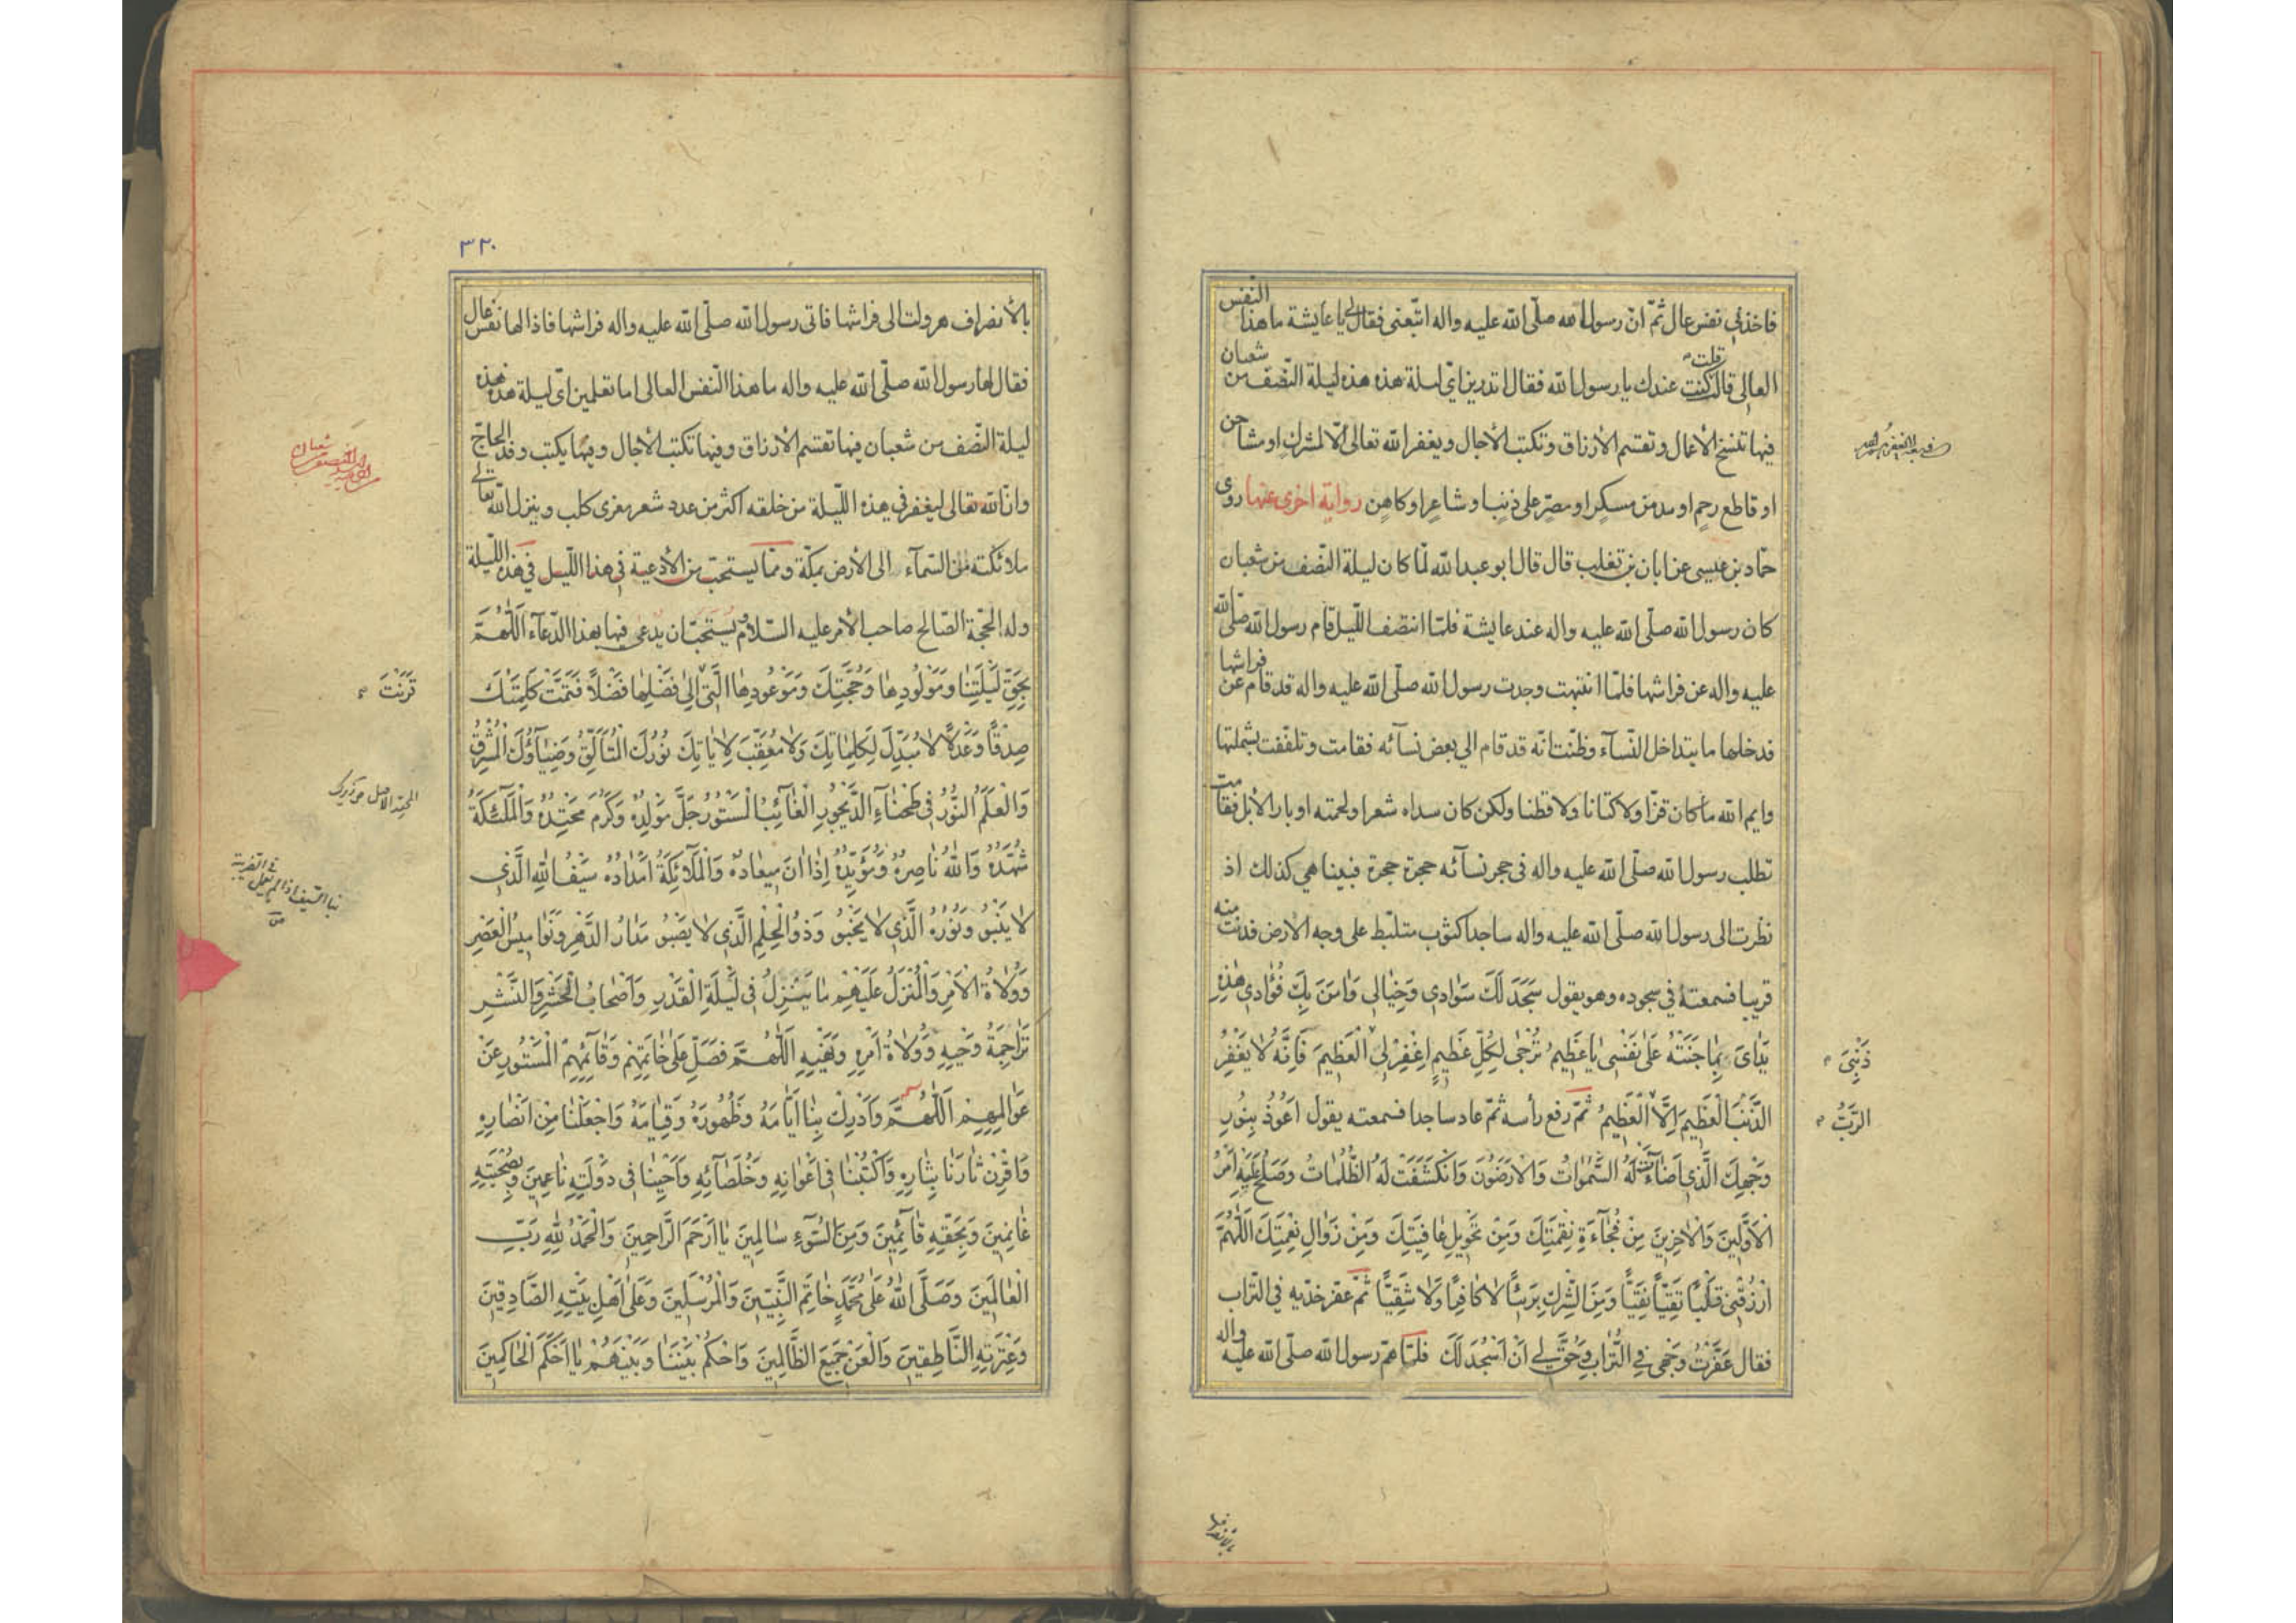 فاخذني نفس عال ثمّ انّ رسول الله صلّى الله عليه واله اتّبعنى فقال لى يا عايشة ما هذا النفس
العالى قالت قلت كنت عندك يا رسول الله فقال اتدرين اىّ ليلة هذه هذه ليلة النّصف من شعبان
فيها تنسخ الأعمال وتقسم الأرزاق وتكتب الأجال ويغفر الله تعالى الّا لمشرك او مشاحن
او قاطع رحم او مدمن مسكر او مصرّ على ذنب او شاعر او كاهن رواية اخرى عنها روى
حمّاد بن عيسى عن ابان بن تغلب قال قال ابو عبد الله لمّا كان ليلة النّصف من شعبان
كان رسول الله صلّى الله عليه واله عند عايشة فلمّا انتصف اللّيل قام رسول الله صلّى الله
عليه واله عن فراشها فلمّا انتبهت وجدت رسول الله صلّى الله عليه واله قد قام عن فراشها
فدخلها ما يتداخل النّسآء وظنّت انّه قد قام الى بعض نسآئه فقامت وتلفّفت بشملتها
وايم الله ما كان قزّا ولا كتّانا ولا قطنا ولكن كان سداه شعرا ولحمته اوبار الأبل فقامت
تطلب رسول الله صلّى الله عليه واله فى حجر نسآئه حجرة حجرة فبينا هي كذلك اذ
نظرت الى رسول الله صلّى الله عليه واله ساجدا كثوب متلبّط على وجه الارض فدنت منه
قريبا فسمعته في سجوده وهو يقول سَجَدَ لَكَ سَوَادى وَخَيَالى وَاٰمَنَ بِكَ فُؤٰادى هٰذِهِ
يَدَاىَ بِمَا جَنَيْتُهُ عَلىٰ نَفْسى يَا عَظيمُ تُرْجىٰ لِكُلِّ عَظيمٍ اِغْفِرْ لِىَ الْعَظيمَ فَاِنَّهُ لَا يَغْفِرُ
ذَنْبِىَ
الذَّنْبَ الْعَظيمَ اِلَّا الْعَظيمُ ثمّ رفع رأسه ثمّ عاد ساجدا فسمعته يقول اَعُوذُ بِنُورِ
الرَّبُّ
وَجْهِكَ الَّذى اَضَآءَتْ لَهُ السَّمٰوَاتُ وَالْاَرَضُونَ وَانْكَشَفَتْ لَهُ الظُّلُمَاتُ وَصَلُحَ عَلَيْهِ اَمْرُ
الْاَوَّلينَ وَالْاٰخِرينَ مِنْ فُجْآءَةِ نِقْمَتِكَ وَمِنْ تَحْويلِ عَافِيَتِكَ وَمِنْ زَوَالِ نِعْمَتِكَ اَللّٰهُمَّ
ارْزُقْنى قَلْبًا تَقِيًّا نَقِيًّا وَمِنَ الشِّرْكِ بَريئًا لَا كَافِرًا وَلَا شَقِيًّا ثمّ عفّر خدّيه في التّراب
فقال عَفَّرْتُ وَجْهى فِى التُّرَابِ وَحُقَّ لِى اَنْ اَسْجُدَ لَكَ فلمّا همّ رسول الله صلّى الله عليه واله
بالانصراف
٣٢٠
بالأنصراف هرولت الى فراشها فاتى رسول الله صلّى الله عليه واله فراشها فاذا لها نفس عال
فقال لها رسول الله صلّى الله عليه واله ما هذا النّفس العالى اما تعلمين اىّ ليلة هذه هذه
ليلة النّصف من شعبان فيها تقسم الأرزاق وفيها تكتب الأجال وفيها يكتب وفد الحاجّ
وانّ الله تعالى ليغفر في هذه اللّيلة من خلقه اكثر من عدد شعر معزى كلب وينزل الله تعالى
ملائكته من السّمآء الى الأرض بمكّة وممّا يستحبّ من الأدعية فى هذا اللّيل في هذه اللّيلة
ولد الحجّة الصّالح صاحب الأمر عليه السّلام يستحبّ ان يدعى فيها بهذا الدّعآء اَللّٰهُمَّ
بِحَقِّ لَيْلَتِنَا وَمَوْلُودِهَا وَحُجَّتِكَ وَمَوْعُودِهَا الَّتى اِلىٰ فَضْلِهَا فَضْلًا فَتَمَّتْ كَلِمَتُكَ
قَرَنْتَ
صِدْقًا وَعَدْلًا لَا مُبَدِّلَ لِكَلِمَاتِكَ وَلَا مُعَقِّبَ لِاٰيَاتِكَ نُورُكَ الْمُتَاَلِّقُ وَضِيَآؤُكَ الْمُشْرِقُ
وَالْعَلَمُ النُّورُ فى طَخْيَآءِ الدَّيْجُورِ الْغَآئِبُ الْمَسْتُورُ جَلَّ مَوْلِدُهُ وَكَرُمَ مَحْتِدُهُ وَالْمَلٰٓئِكَةُ
شُهَّدُهُ وَاللهُ نَاصِرُهُ وَمُؤَيِّدُهُ اِذَا اٰنَ ميعَادُهُ وَالْمَلَآئِكَةُ اَمْدَادُهُ سَيْفُ اللهِ الَّذى
لَا يَنْبُو وَنُورُهُ الَّذى لَا يَخْبُو وَذُو الْحِلْمِ الَّذى لَا يَصْبُو مَدَارُ الدَّهْرِ وَنَوَاميسُ الْعَصْرِ
وَوُلَاةُ الْاَمْرِ وَالْمُنَزَّلُ عَلَيْهِمْ مَا يَتَنَزَّلُ فى لَيْلَةِ الْقَدْرِ وَاَصْحَابُ الْحَشْرِ وَالنَّشْرِ
تَرَاجِمَةُ وَحْيِهِ وَوُلَاةُ اَمْرِهِ وَنَهْيِهِ اَللّٰهُمَّ فَصَلِّ عَلىٰ خَاتِمِهِمْ وَقَآئِمِهِمْ الْمَسْتُورِ عَنْ
عَوَالِمِهِمْ اَللّٰهُمَّ وَاَدْرِكْ بِنَا اَيَّامَهُ وَظُهُورَهُ وَقِيَامَهُ وَاجْعَلْنَا مِنْ اَنْصَارِهِ
وَاقْرِنْ ثَارَنَا بِثَارِهِ وَاكْتُبْنَا فى اَعْوَانِهِ وَخُلَصَآئِهِ وَاَحْيِنَا فى دَوْلَتِهِ نَاعِمينَ وَبِصُحْبَتِهِ
غَانِمينَ وَبِحَقِّهِ قَآئِمينَ وَمِنَ السُّوٓءِ سَالِمينَ يَا اَرْحَمَ الرَّاحِمينَ وَالْحَمْدُ لِلّٰهِ رَبِّ
الْعَالَمينَ وَصَلَّى اللهُ عَلىٰ مُحَمَّدٍ خَاتَمِ النَّبِيّينَ وَالْمُرْسَلينَ وَعَلىٰ اَهْلِ بَيْتِهِ الصَّادِقينَ
وَعِتْرَتِهِ النَّاطِقينَ وَالْعَنْ جَميعَ الظَّالِمينَ وَاحْكُمْ بَيْنَنَا وَبَيْنَهُمْ يَا اَحْكَمَ الْحَاكِمينَ